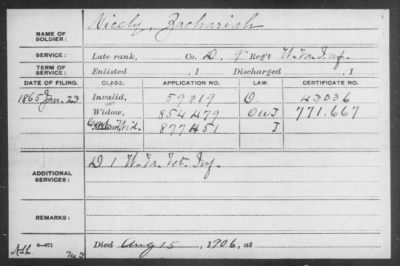 NAME OF SOLDIER: Nicely, Zachariah
SERVICE: Late rank, Co. D, 9" Reg't W. Va. Inf.
TERM OF SERVICE: Enlisted , 1 Discharged , 1
DATE OF FILING. CLASS. APPLICATION NO. LAW. CERTIFICATE NO.
1865 Jan. 23 Invalid, 59219 O. 43036
Widow, 854479 O w J 771.667
Wid. 877451 J
ADDITIONAL SERVICES: D 1 W. Va. Vet. Inf.
REMARKS:
Died Aug 15, 1906, at